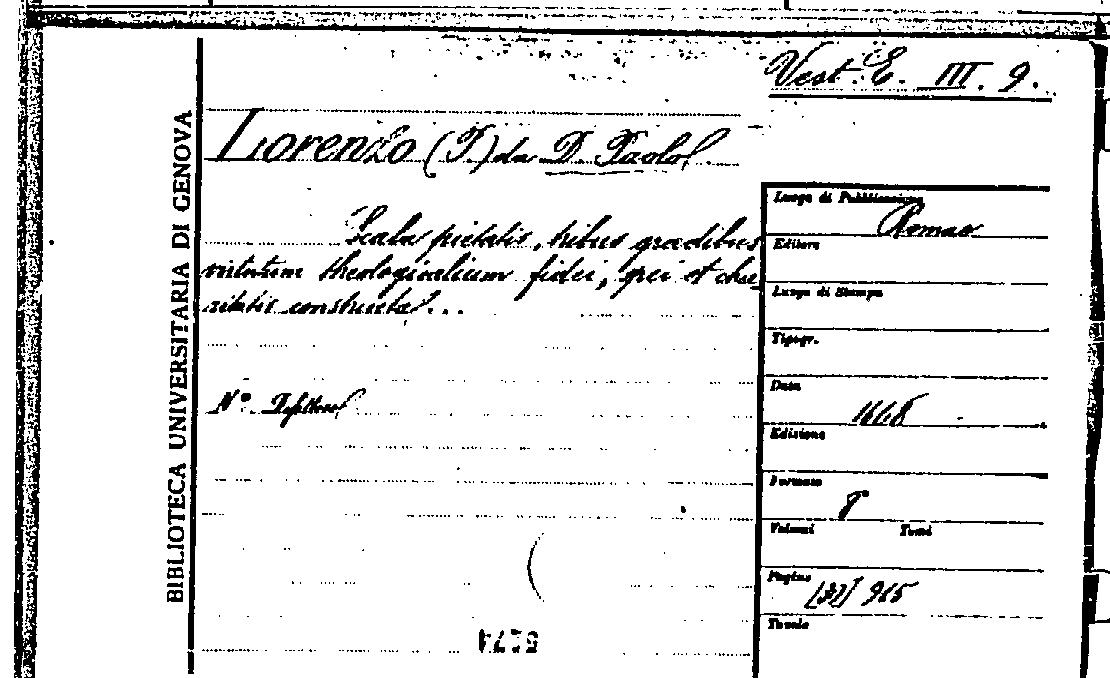 BIBLIOTECA UNIVERSITARIA DI GENOVA
Vest. E. III. 9.
Lorenzo (F.) da D. Paolo
Scala pietatis, tribus gradibus
virtutum theologicalium fidei, spei et cha
ritatis constructa...
N°.
Luogo di Pubblicazione
Romae
Editore
Luogo di Stampa
Tipogr.
Data
1668
Edizione
Formato
8°
Volumi Tomi
Pagine
915
Tavole